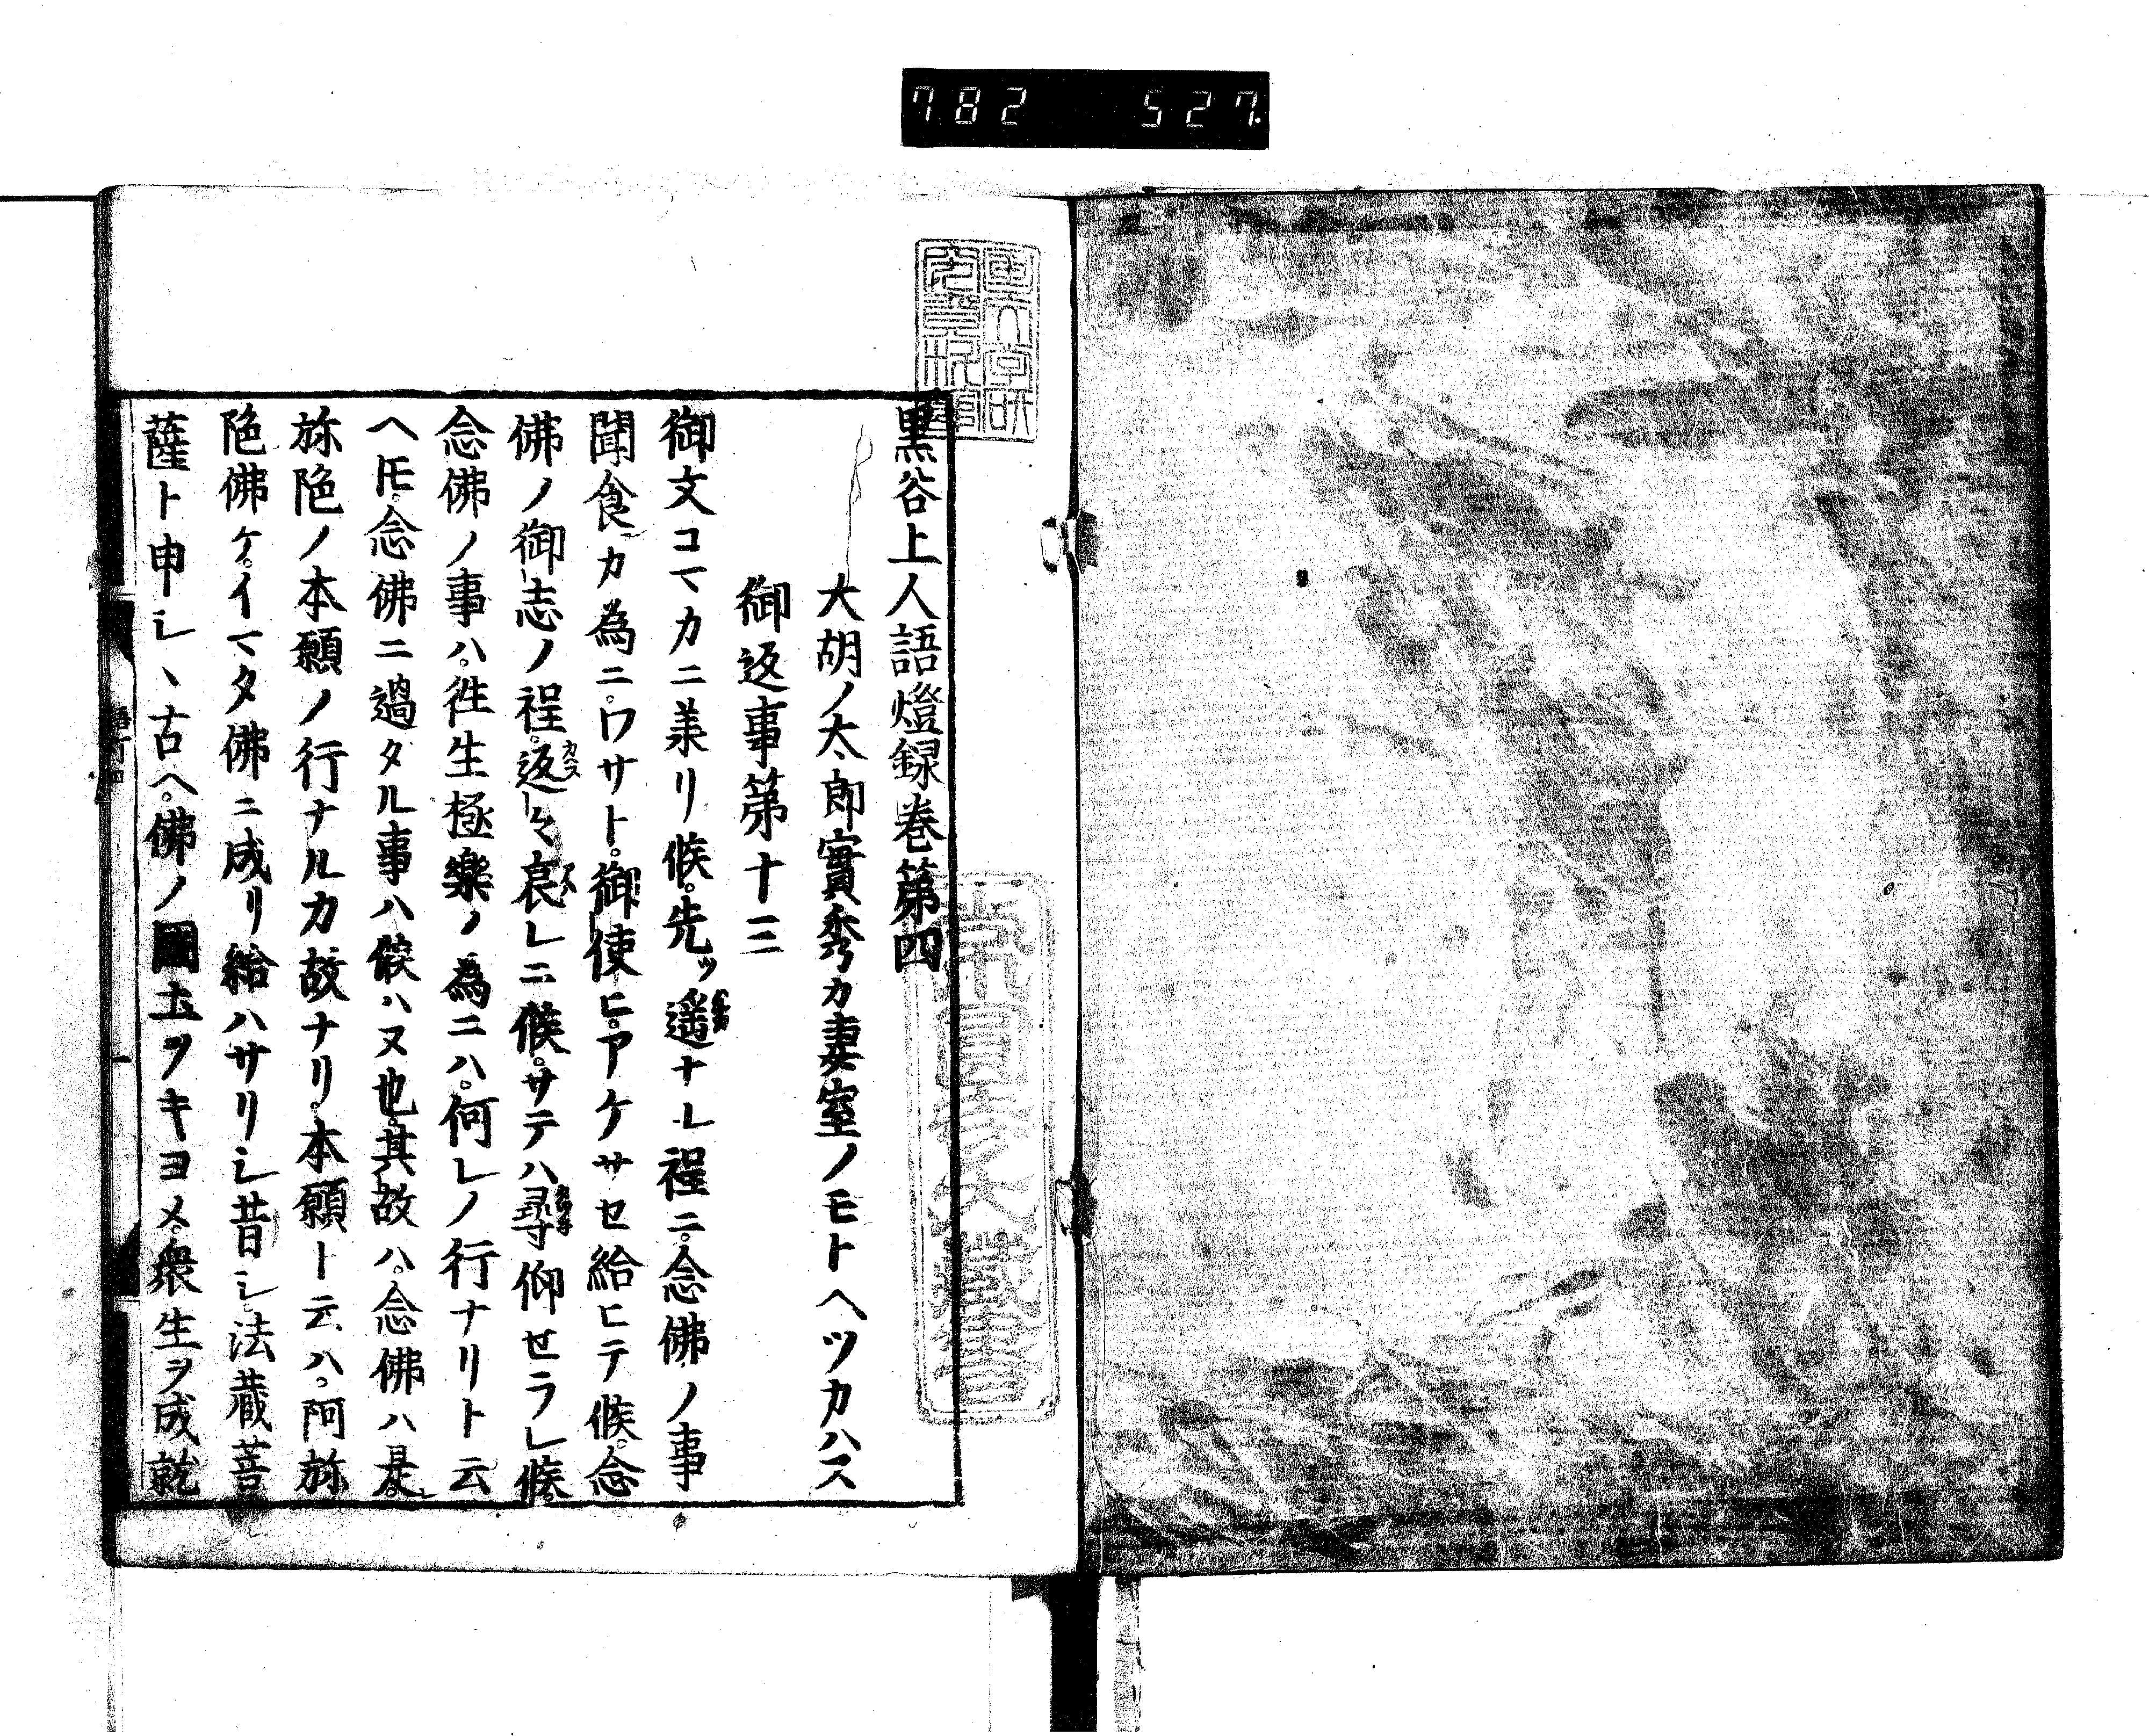 782 527.
黒谷上人語燈録巻第四
大胡ノ太郎實秀カ妻室ノモトヘツカハス
御返事第十三
御文コマカニ羕リ候。先ッ遥ナレ程ニ。念佛ノ事
聞食カ為ニ。ワサト。御使ヒ。アケサセ給ヒテ候。念
佛ノ御志ノ程。返〻哀レニ候。サテハ尋仰セラレ候。
念佛ノ事ハ。徃生極樂ノ為ニハ。何レノ行ナリト云
ヘ𪜈。念佛ニ過タル事ハ候ハヌ也。其故ハ。念佛ハ是レ
弥陀ノ本願ノ行ナルカ故ナリ。本願ト云ハ。阿弥
陀佛ケ。イマタ佛ニ成リ給ハサリシ昔シ法藏菩
薩ト申シヽ古ヘ。佛ノ國土ヲキヨメ。衆生ヲ成就